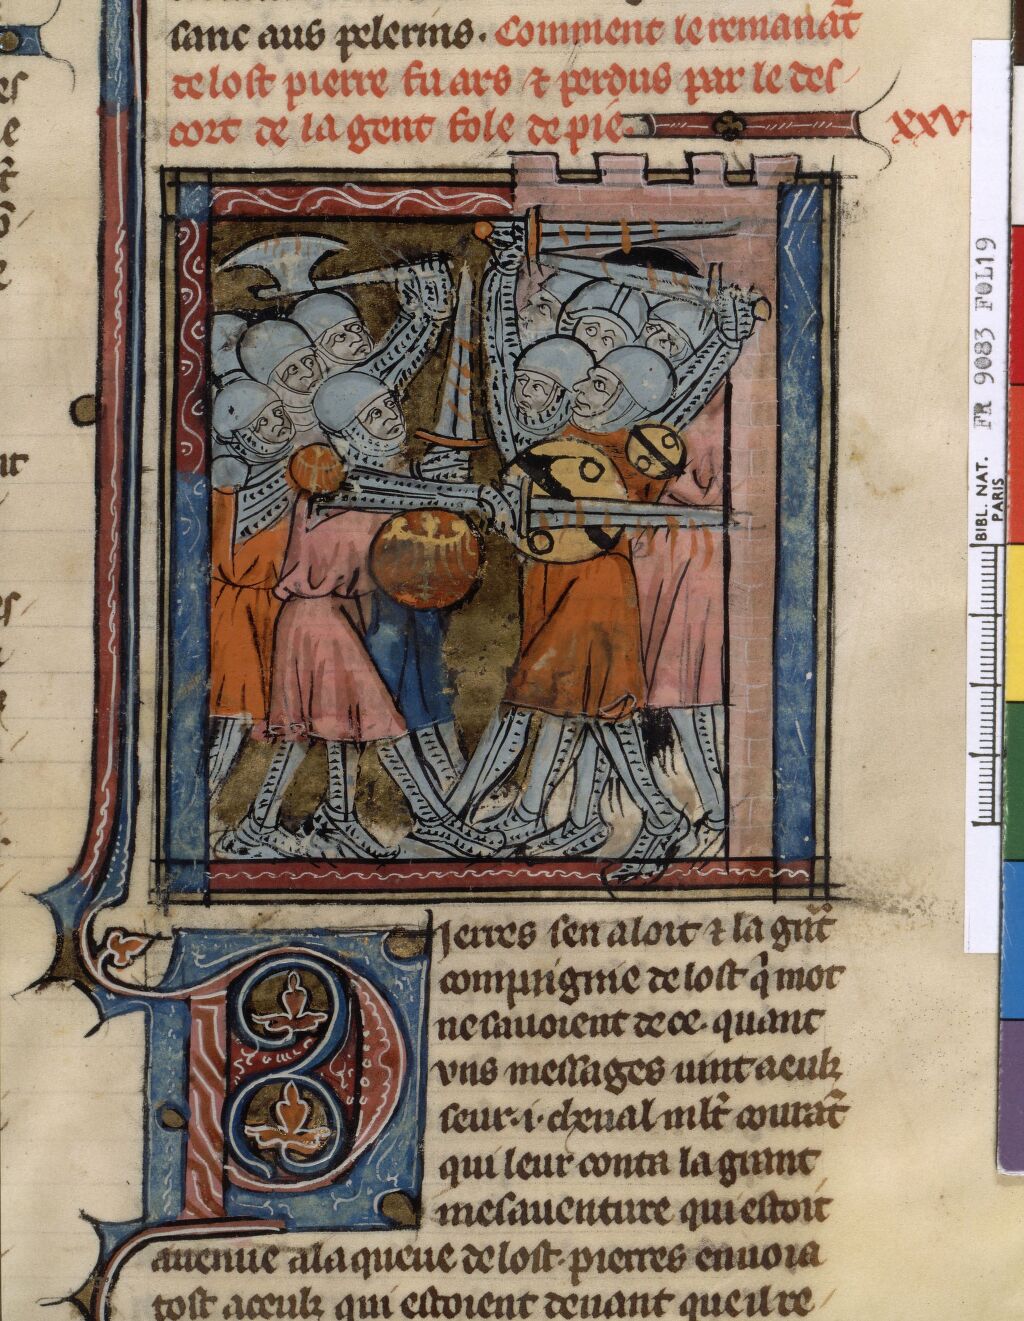 sanc aus pelerins. Comment le remanāt
de lost pierre fu ars ⁊ perdus par le des
cort de la gent fole de pie.
xxv
Pierres sen aloit ⁊ la gūt
compaignie de lost q̄ mot
ne sauoient de ce. quant
vns messages uint a eulz
seur .i. cheual mlt̄ courāt
qui leur conta la grant
mesauenture qui estoit
auenue a la queue de lost. pierres enuoia
tost a ceulz qui estoient deuant que il re
BIBL. NAT. PARIS
FR 9083 FOL19